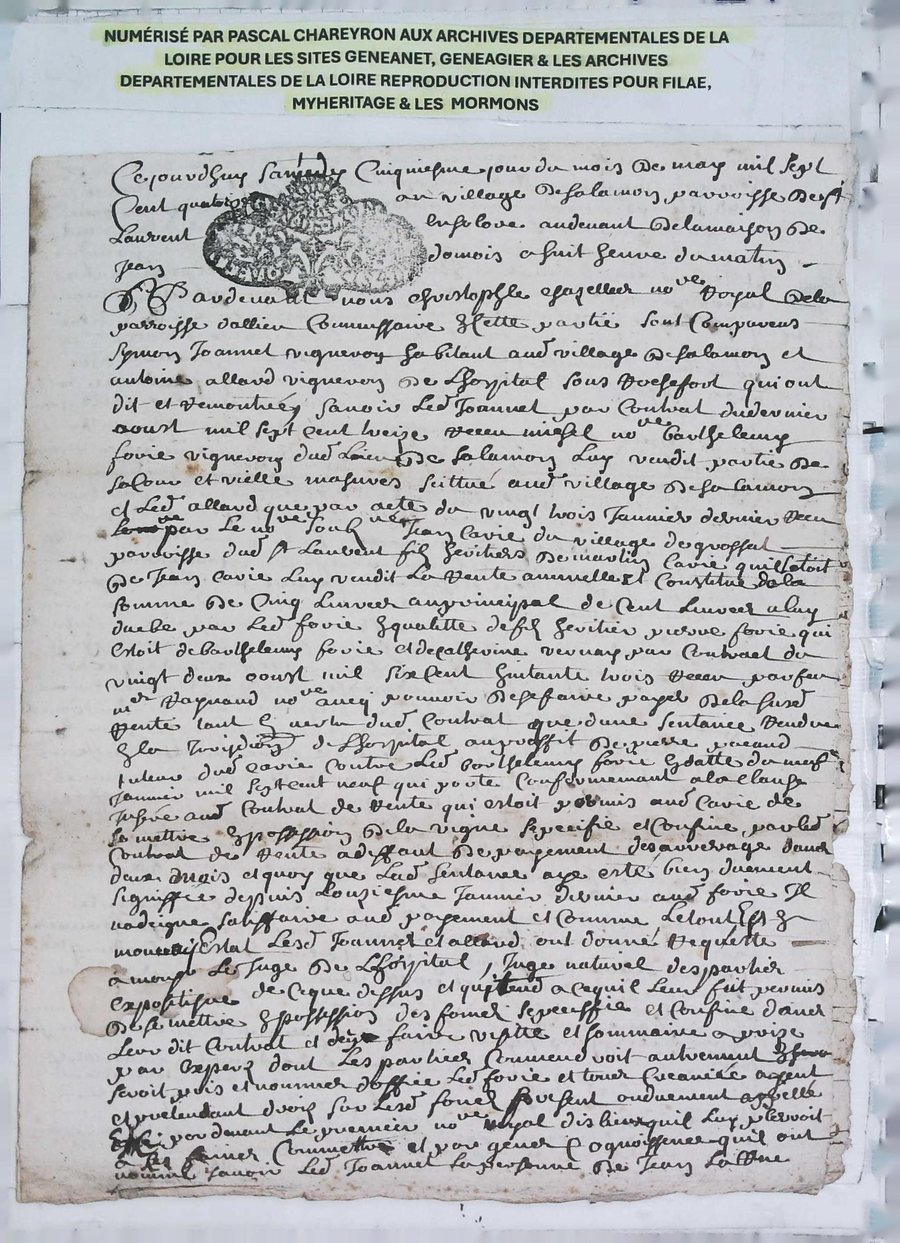 NUMÉRISÉ PAR PASCAL CHAREYRON AUX ARCHIVES DEPARTEMENTALES DE LA
LOIRE POUR LES SITES GENEANET, GENEAGIER & LES ARCHIVES
DEPARTEMENTALES DE LA LOIRE REPRODUCTION INTERDITES POUR FILAE,
MYHERITAGE & LES MORMONS
Cejourdhuy samedy Cinquiesme jour du mois de may mil sept
Cent quatorze au village de salamon parroisse de st
Laurent en solore audevant de la maison de
Jean domois a huit heure du matin
Pardevant nous christophle chazellier nore Royal de la
parroisse dallieu Commissaire cette partie sont Comparens
symon Joannet vigneron habitant aud village de salamon et
antoine allard vigneron de Lhospital sous Rochefort qui ont
dit et Remontré scavoir Led Joannet par Contrat du dernier
aoust mil sept cent treize Receu michel nore barthelemy
forie vigneron dud Lieu de salamon Luy vendit partie de
sa Cour et vielle masures scittué aud village de salamon
et Led allard que par acte du vingt trois Janvier dernier Receu
par Le nore Jean Cavie du village de grossat
parroisse dud st Laurent fils heritiers de martin Cavie quil estoit
de Jean Cavie Luy vendit La Rente annuelle et Constitué de la
somme de Cinq Livres au principal de Cent Livres a luy
duebe par Led forie qualitte de fils heritier pierre forie qui
estoit de barthelemy forie et de catherine vernay par Contract du
vingt deux aoust mil six cent huitante trois Receu par feu
me Raynaud nore avec pouvoir de se faire payer de la susd
Rente tant vertu dud Contrat que dune sentance Rendue
la Jurisdion de Lhospital au proffit de pierre
tuteur dud Cavie contre Led barthelemy forie datte du neuf
Janvier mil sept cent neuf qui porte Conformement a la clause
aud Contrat de Rente qui estoit permis aud Cavie de
se mettre possession de la vigne specifie et Confine par led
Contrat de Rente a deffaut de payement des arrerage dans
deux mois et quoy que Lad sentance aye esté bien duement
signiffiée depuis Lonziesme Janvier dernier aud forie Il
na daigne satisfaire aud payement et Comme Le tout est
mauvais Estat Lesd Joannet et allard ont donné Requette
a monsr Le Juge de Lhospital, Juge naturel des parties
expositive de ce que dessus et a ce quil Leur fut permis
de se mettre possession des fonds speciffie et Confine dans
Leur dit Contrat et faire visitte et sommaire a prise
par expers dont Les parties Conviendroit autrement
seroit pris et nommer doffice Led forie et tous Creancie ayent
et pretendant droit sur Lesd fonds present ou duement appellé
pardevant Le premier nore royal des lieux quil Luy plairoit
a Commettre et par gener Cognoissence quil ont
nommé scavoir Led Joannet La personne de Jean